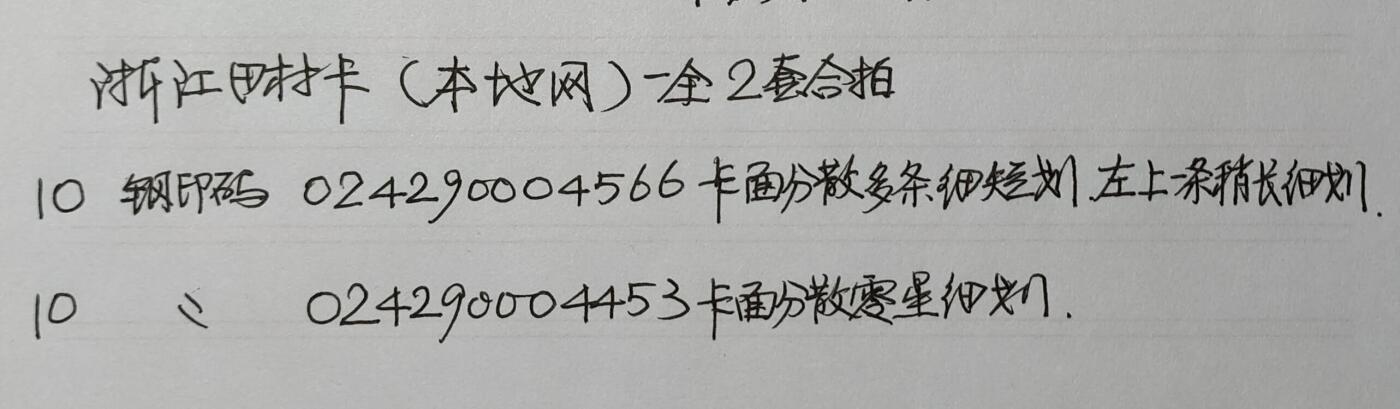 浙江田村卡（本地网）一全2套合拍
10 钢印码 024290004566 卡面分散多条细短划.左上一条稍长细划.
10 〃 024290004453 卡面分散零星细划.